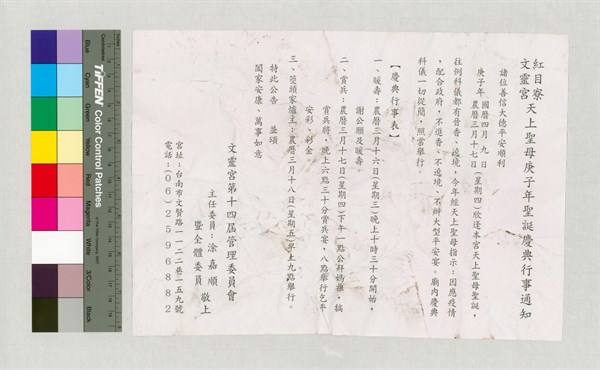 紅目寮
文靈宮 天上聖母庚子年聖誕慶典行事通知
諸位善信大德平安順利
庚子年 國曆四月九日 農曆三月十七日(星期四)欣逢本宮天上聖母聖誕,
往例科儀都有晉香、遶境,今年經天上聖母指示:因應疫情
,配合政府,不進香、不遶境、不辦大型平安宴。廟內慶典
科儀一切從簡,照常舉行。
【慶典行事表】
一、暖壽:農曆三月十六日(星期三)晚上十時三十分開始,
謝公願及暖壽
二、賞兵:農曆三月十七日(星期四)下午一點公杯媽推,犒
賞兵將,晚上六點三十分賞兵宴,八點舉行乞平
安彩,彩金
三、筊頭家爐主:農曆三月十八日(星期五)早上九點舉行。
特此公告 並頌
閤家安康、萬事如意
文靈宮第十四屆管理委員會
主任委員:涂嘉順
暨全體委員 敬上
宮址:台南市文賢路一一二二巷一五九號
電話:(06)2596882
TIFFEN Color Control Patches
Centimetres
Blue
Cyan
Green
Yellow
Red
Magenta
White
3/Color
Black